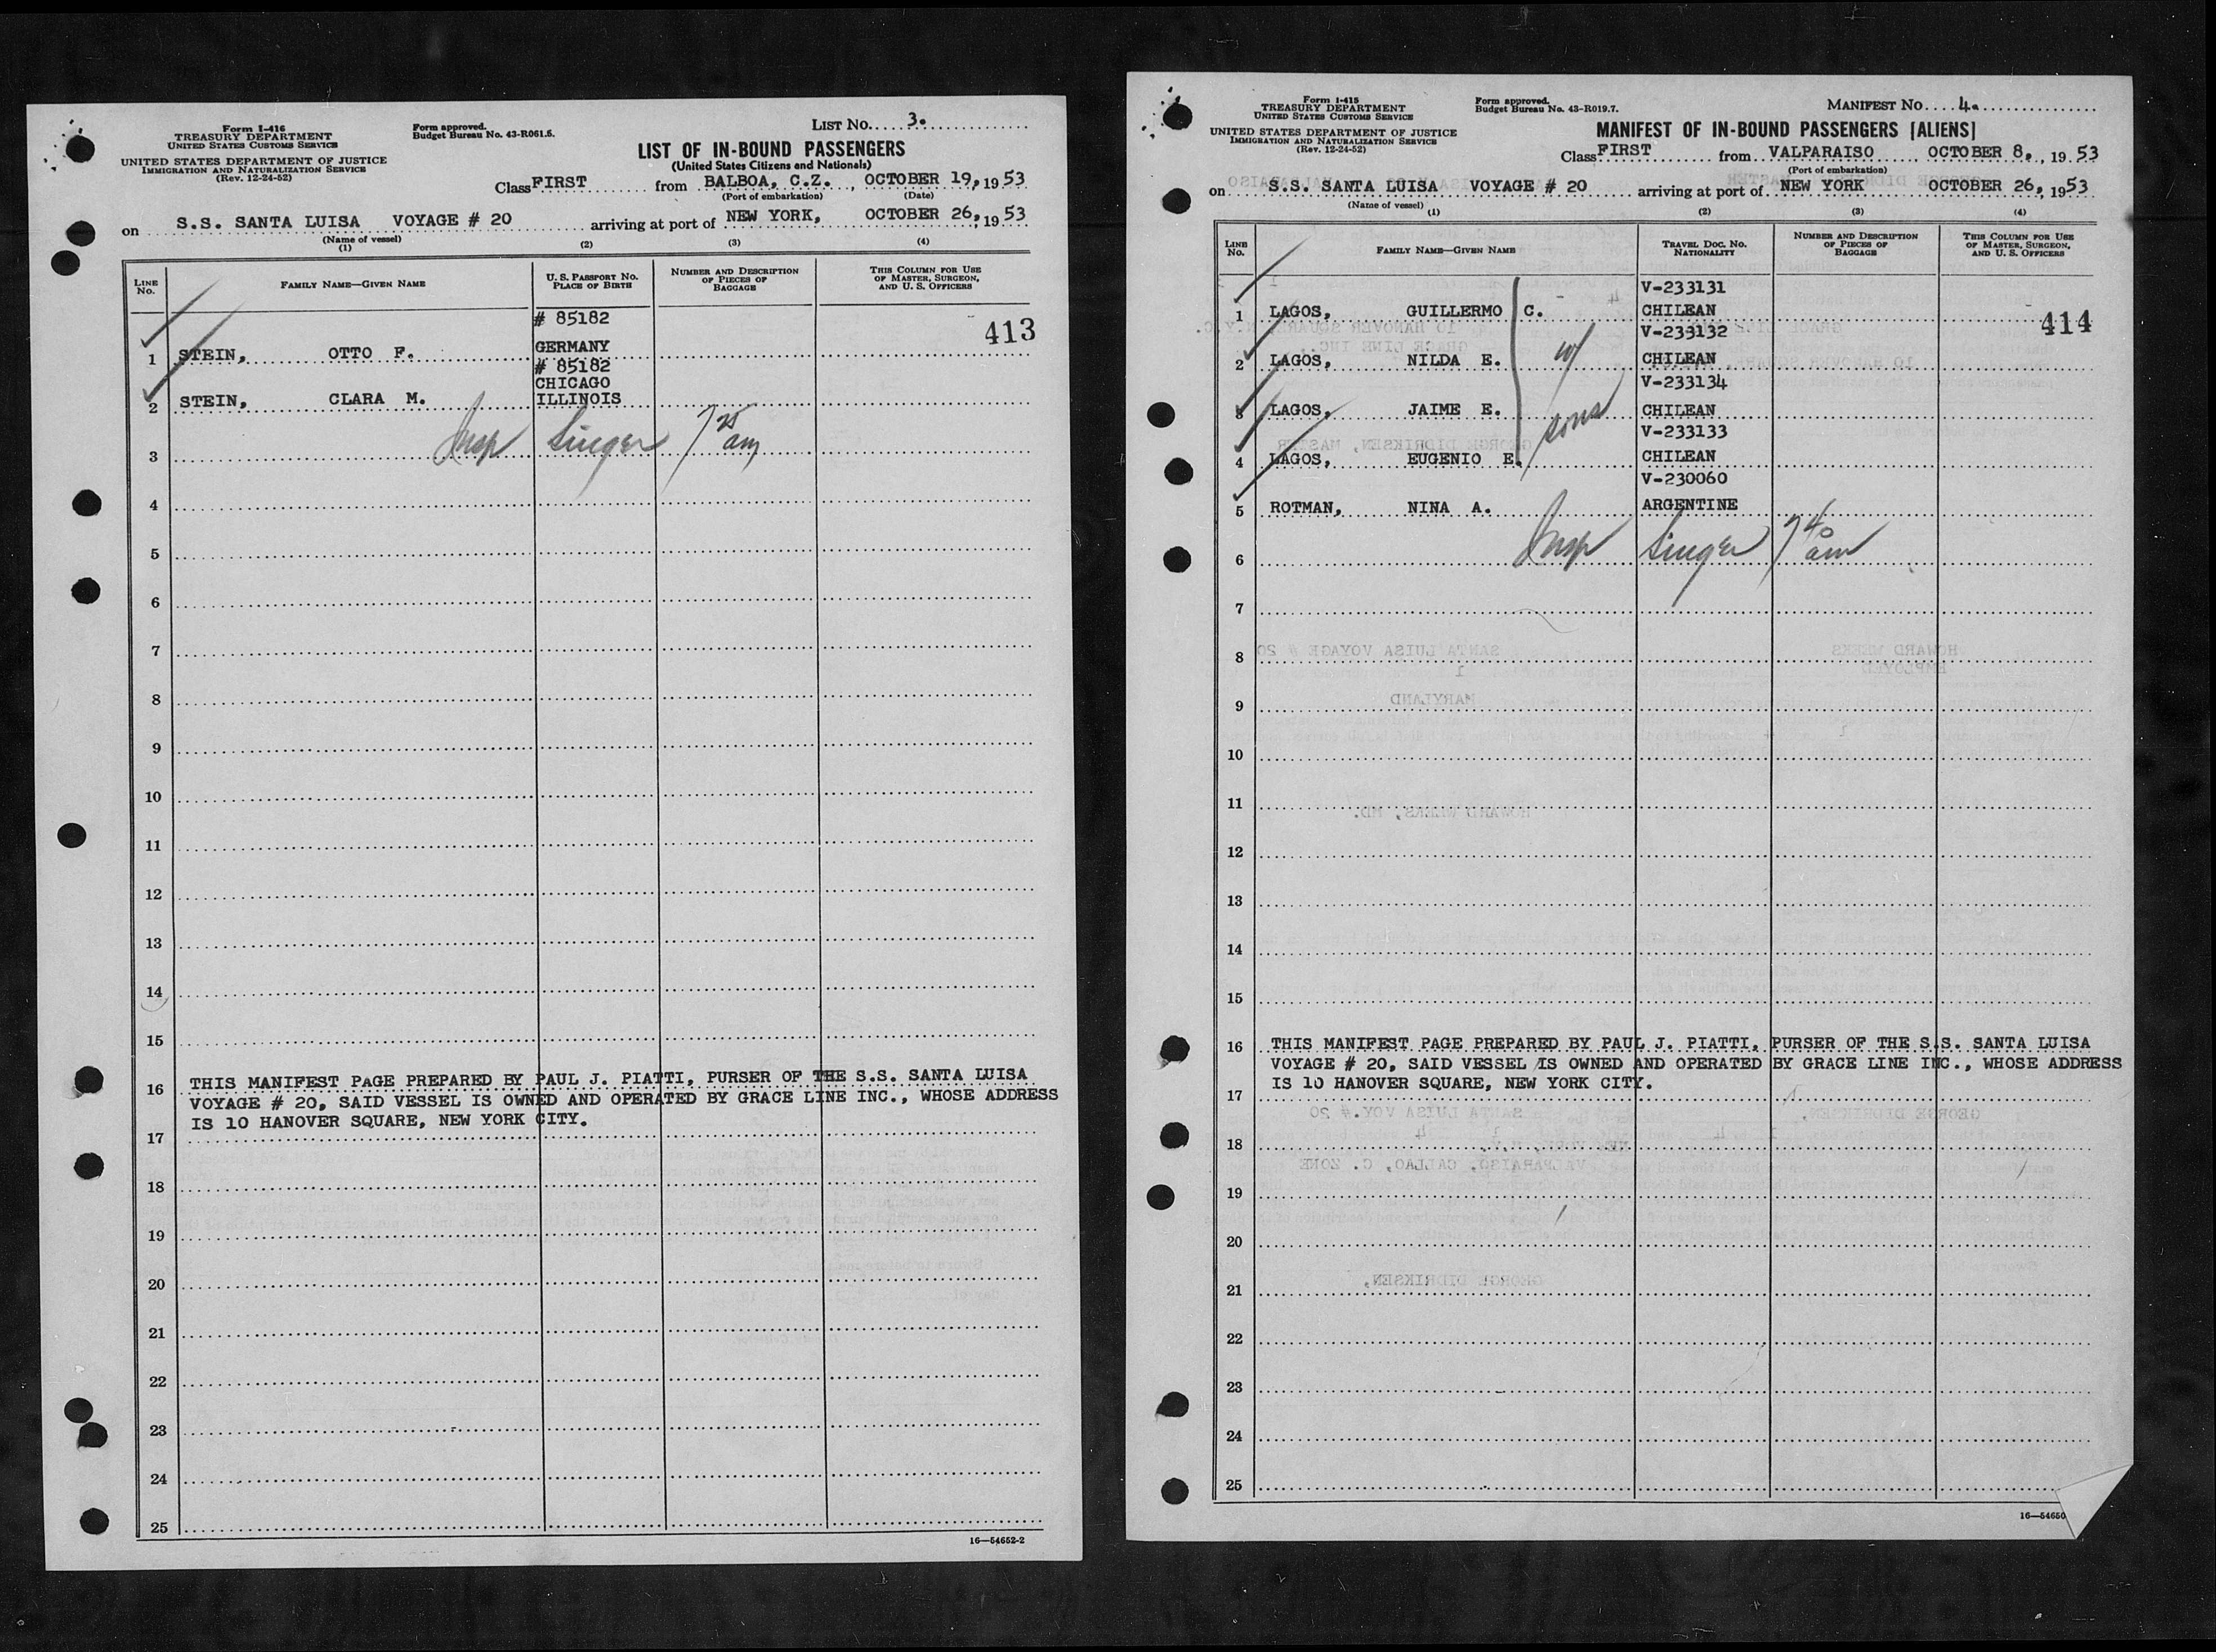 Form I-416
TREASURY DEPARTMENT
UNITED STATES CUSTOMS SERVICE
UNITED STATES DEPARTMENT OF JUSTICE
IMMIGRATION AND NATURALIZATION SERVICE
(Rev. 12-24-52)
Form approved.
Budget Bureau No. 43-R061.5.
LIST No. 3.
LIST OF IN-BOUND PASSENGERS
(United States Citizens and Nationals)
Class FIRST from BALBOA, C.Z., OCTOBER 19, 1953
(Port of embarkation) (Date)
on S.S. SANTA LUISA VOYAGE # 20 arriving at port of NEW YORK, OCTOBER 26, 1953
(Name of vessel)
(1) (2) (3) (4)
LINE No. FAMILY NAME—GIVEN NAME U. S. PASSPORT NO. PLACE OF BIRTH NUMBER AND DESCRIPTION OF PIECES OF BAGGAGE THIS COLUMN FOR USE OF MASTER, SURGEON, AND U. S. OFFICERS
# 85182
413
1 STEIN, OTTO F. GERMANY
# 85182
CHICAGO
2 STEIN, CLARA M. ILLINOIS
3 Insp Singer 7 25 am
4
5
6
7
8
9
10
11
12
13
14
15
16 THIS MANIFEST PAGE PREPARED BY PAUL J. PIATTI, PURSER OF THE S.S. SANTA LUISA
VOYAGE # 20, SAID VESSEL IS OWNED AND OPERATED BY GRACE LINE INC., WHOSE ADDRESS
IS 10 HANOVER SQUARE, NEW YORK CITY.
17
18
19
20
21
22
23
24
25
16—54652-2
Form I-415
TREASURY DEPARTMENT
UNITED STATES CUSTOMS SERVICE
UNITED STATES DEPARTMENT OF JUSTICE
IMMIGRATION AND NATURALIZATION SERVICE
(Rev. 12-24-52)
Form approved.
Budget Bureau No. 43-R019.7.
MANIFEST No. 4.
MANIFEST OF IN-BOUND PASSENGERS [ALIENS]
Class FIRST from VALPARAISO, OCTOBER 8., 1953
(Port of embarkation)
on S.S. SANTA LUISA VOYAGE # 20 arriving at port of NEW YORK OCTOBER 26, 1953
(Name of vessel)
(1) (2) (3) (4)
LINE No. FAMILY NAME—GIVEN NAME TRAVEL DOC. NO. NATIONALITY NUMBER AND DESCRIPTION OF PIECES OF BAGGAGE THIS COLUMN FOR USE OF MASTER, SURGEON, AND U. S. OFFICERS
V-233131
1 LAGOS, GUILLERMO C. CHILEAN
414
V-233132
2 LAGOS, NILDA E. w/ CHILEAN
V-233134
3 LAGOS, JAIME E. sons CHILEAN
V-233133
4 LAGOS, EUGENIO E. CHILEAN
V-230060
5 ROTMAN, NINA A. ARGENTINE
6 Insp Singer 7 40 am
7
8
9
10
11
12
13
14
15
16 THIS MANIFEST PAGE PREPARED BY PAUL J. PIATTI, PURSER OF THE S.S. SANTA LUISA
VOYAGE # 20, SAID VESSEL IS OWNED AND OPERATED BY GRACE LINE INC., WHOSE ADDRESS
IS 10 HANOVER SQUARE, NEW YORK CITY.
17
18
19
20
21
22
23
24
25
16—54650